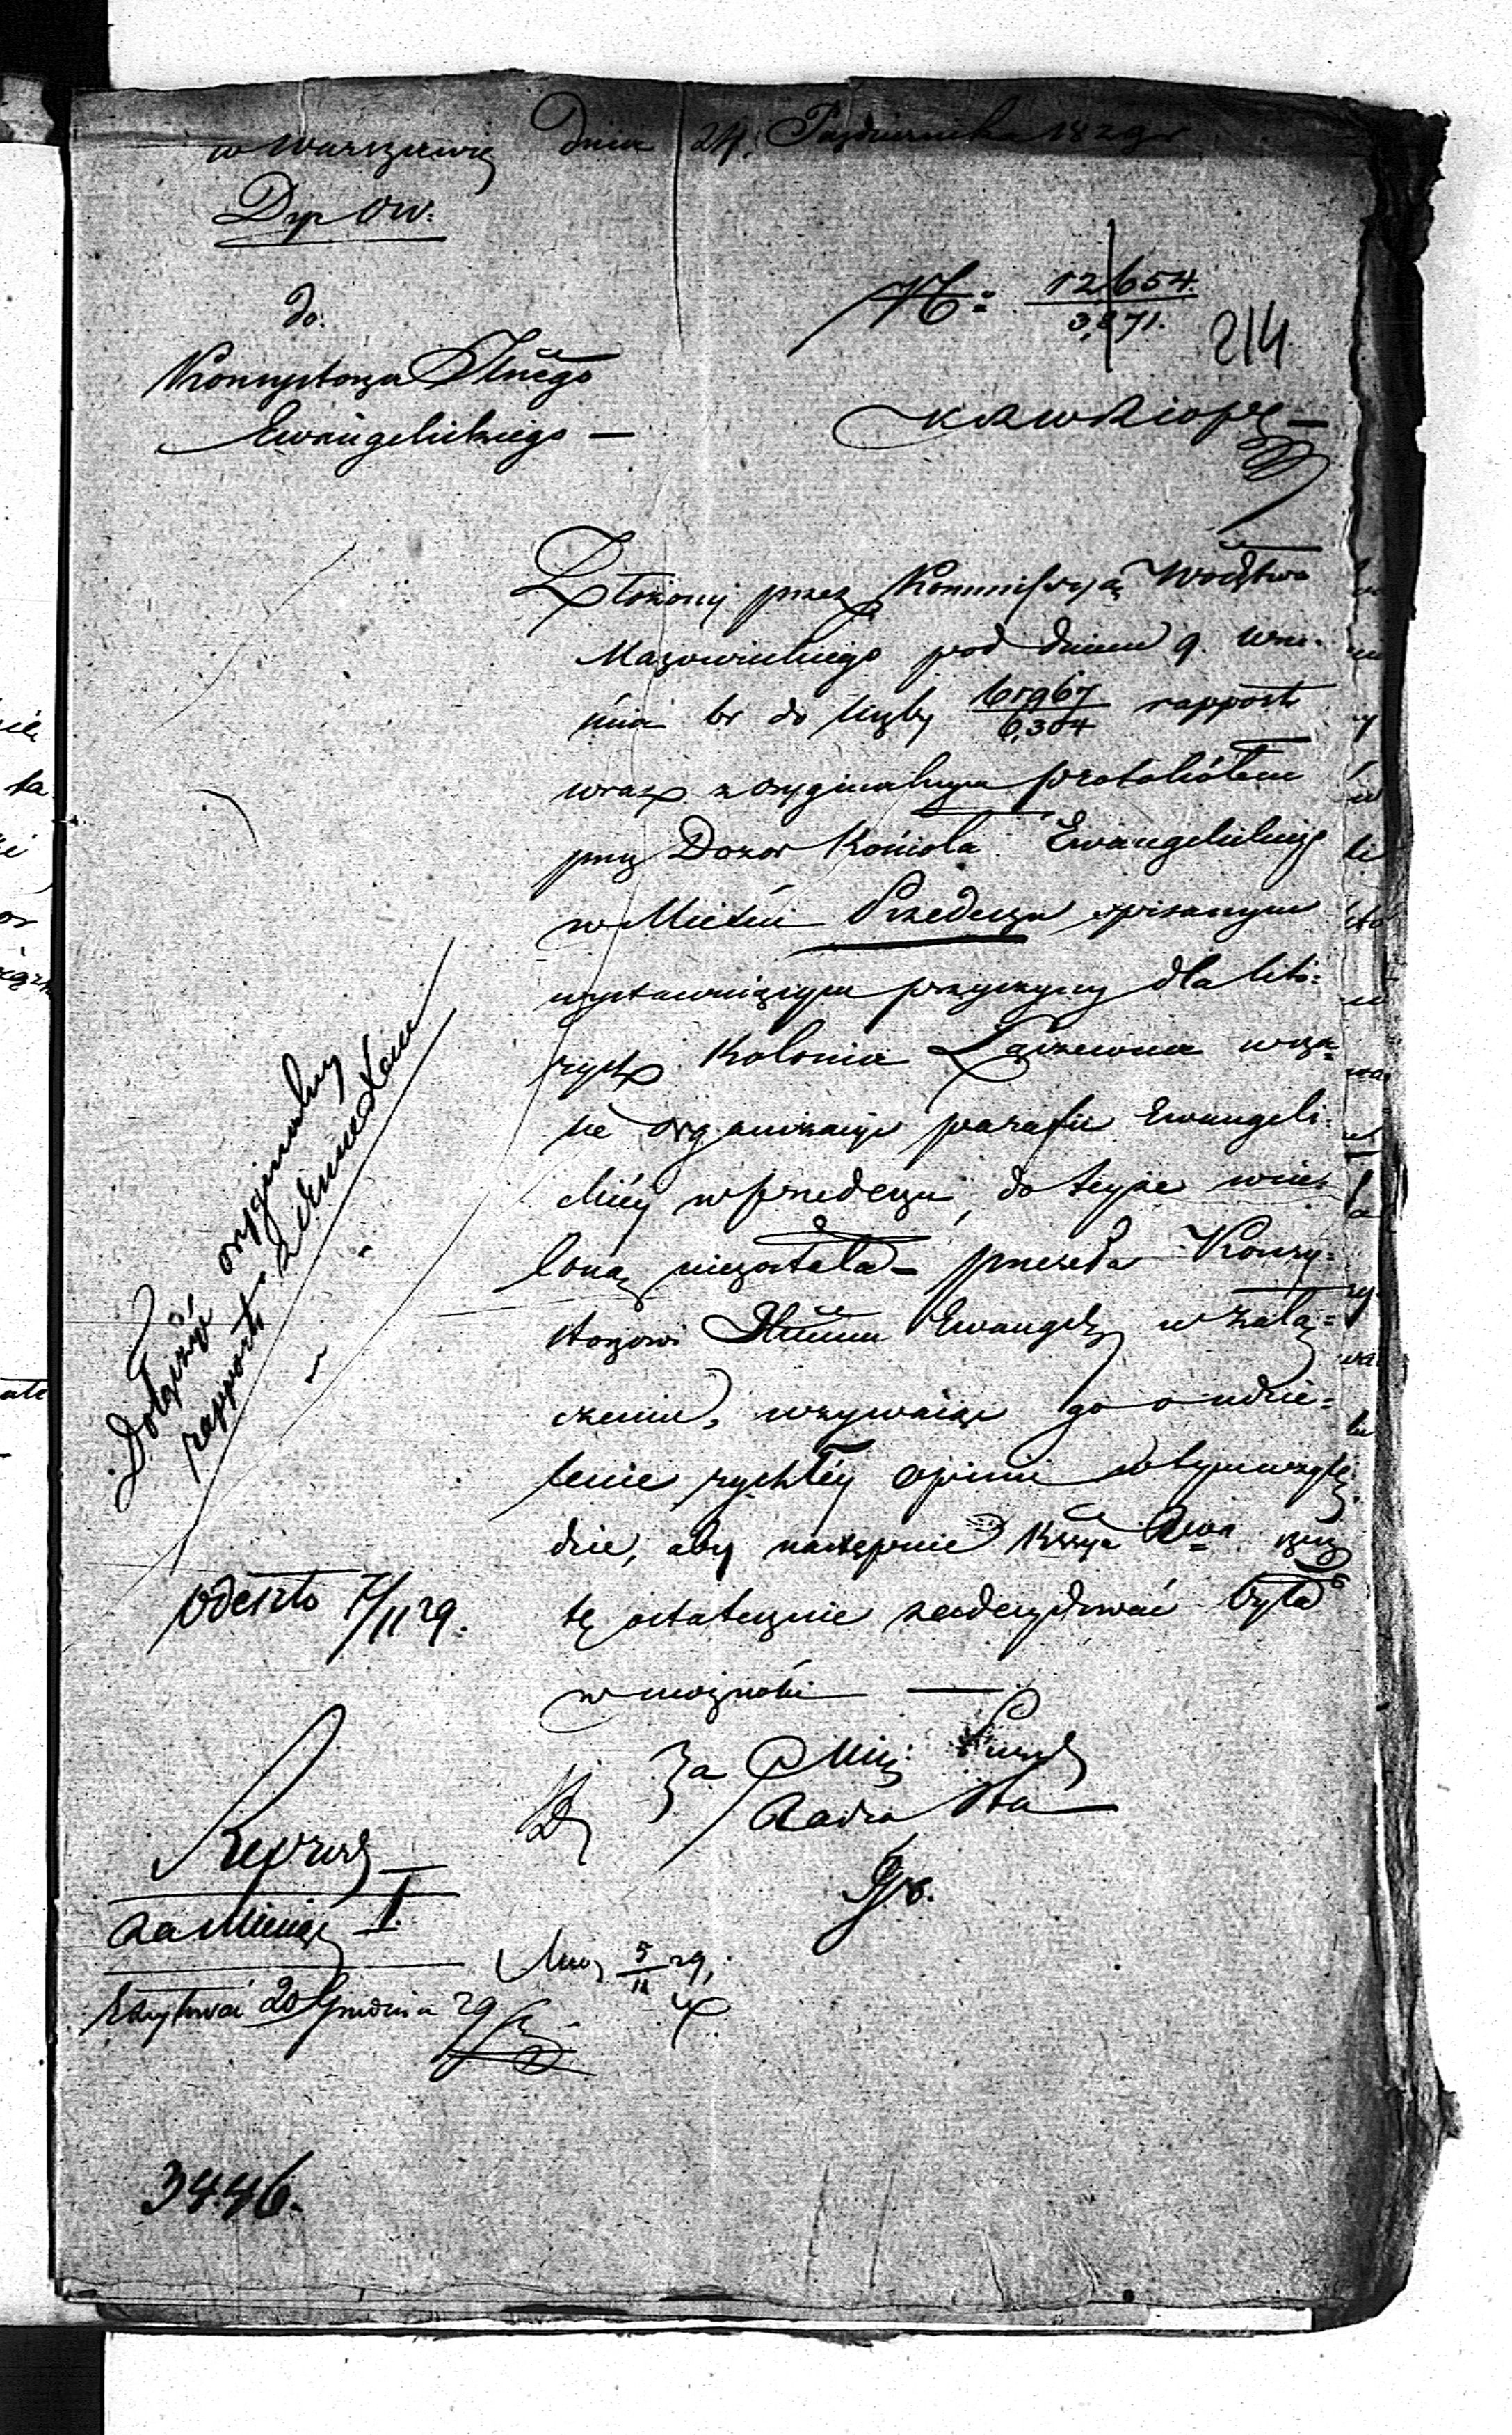 w Warszawie Dnia 24. Października 1829 r
Dyr OW.
do.
Konsystorza Glnego
Ewangelickiego —
No: 12654.
3,871.
214
KRWRiOPę —
Złożony przez Kommissyią Wodztwa
Mazowieckiego pod dniem 9. Wrze-
śnia br do liczby 61967/6,304 rapport
wraz z oryginalnym protokółem
przez Dozor Kościoła Ewangelickiego
w Mieście Przedeczu spisanym
wystawuiącym przyczyny dla któ-
rych Kolonia Łączewna w cza-
sie organizacyi parafii Ewangeli-
ckiéy w Przedeczu, do teyże wcie-
loną niezostała — przeseła Konsy-
storzowi Glnemu Ewangelz w załą-
czeniu, wzywaiąc go o udzie-
lenie rychłéy opinii w tym wzglę-
dzie, aby następnie Kssya Rwa rzecz
tę ostatecznie zadecydować była
w możności —
Dołączyć oryginalny
rapport z Annextem
Odeszło 7/11 29.
Za Min: Prezyd
Radca Sta
Reprod
za Miesiąc I.
Excytować 20 Grudnia 29
5/11 29,
3446.